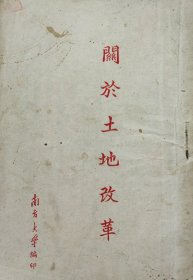 關於土地改革
南方大學編印